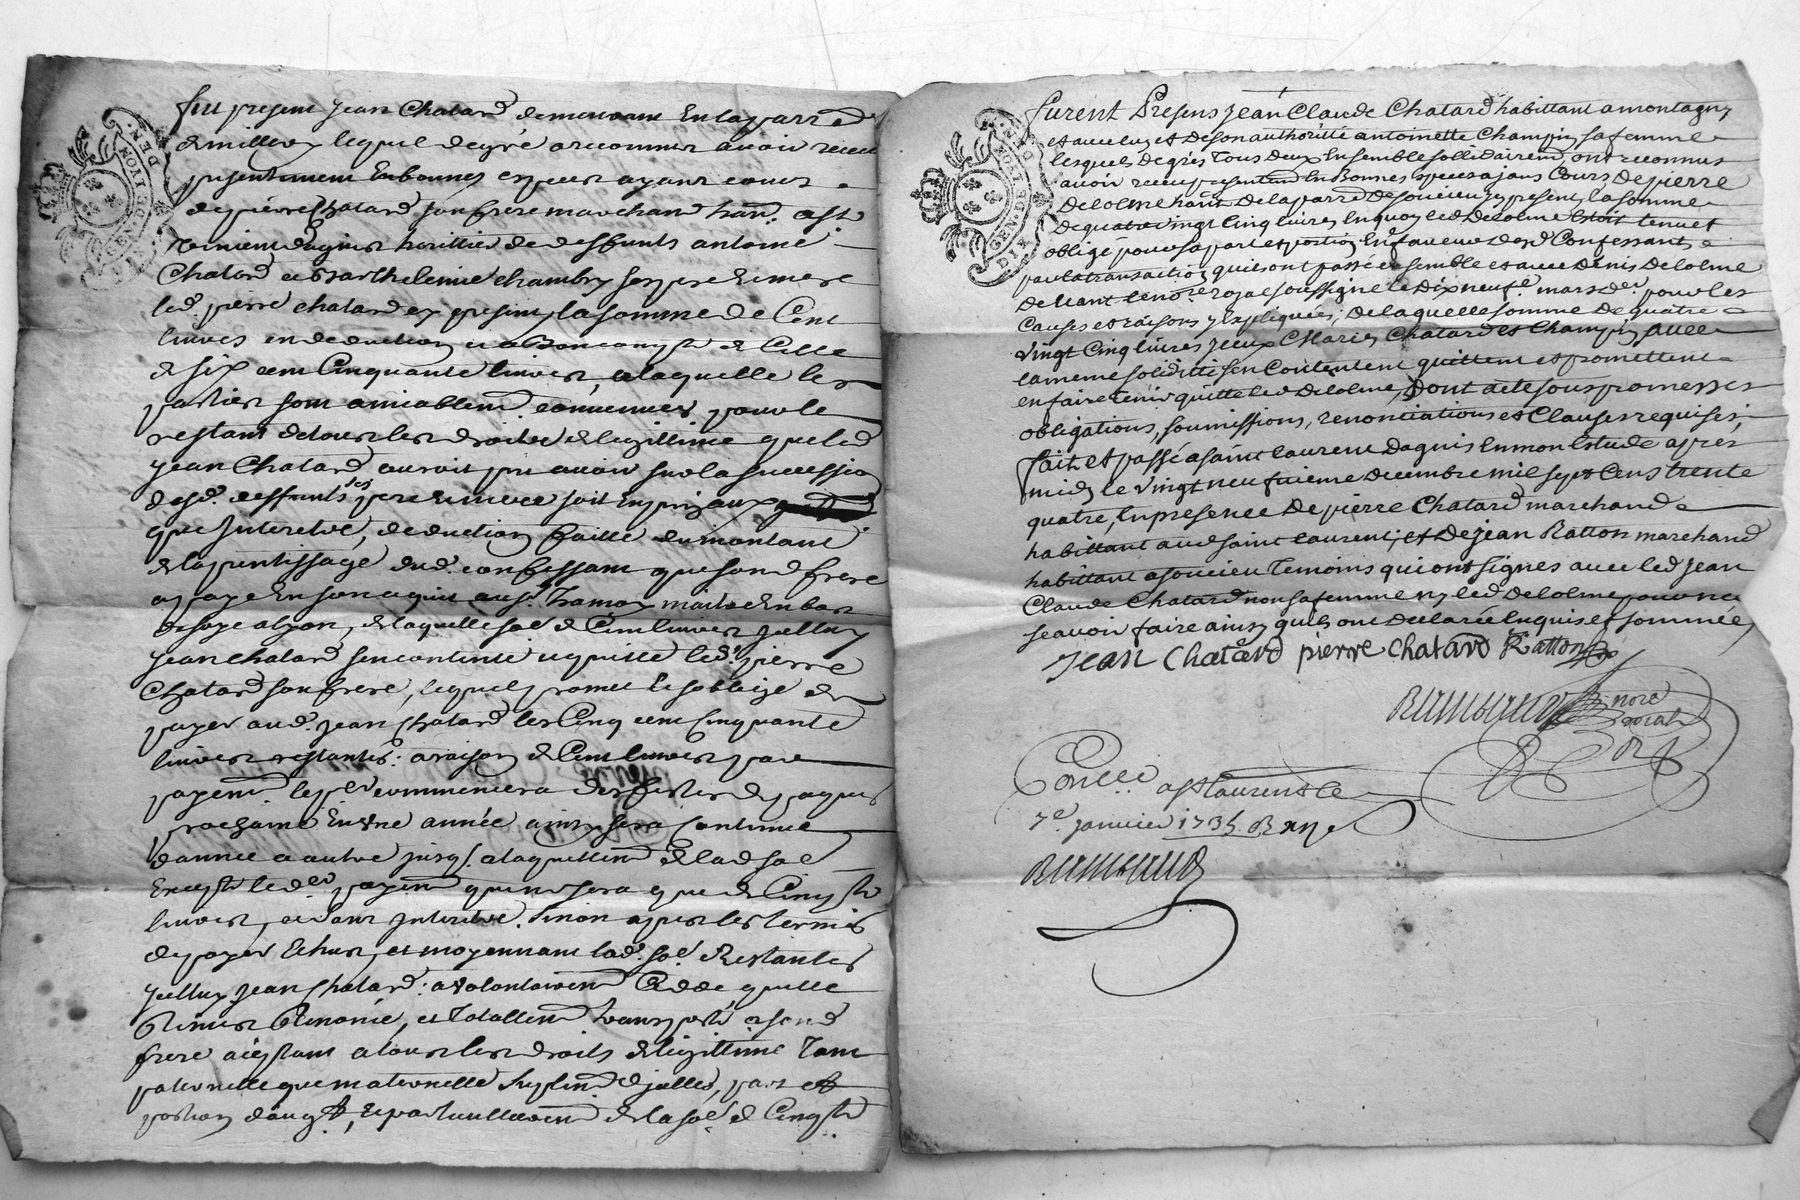 GEN. DE LYON
DIX
fut present Jean Chatard demeurant en la parr. de
millery lequel de gré a reconnu avoir receu
presentement en bonnes especes ayant cours
de pierre Chatard son frere marchand han. a St
Chatard et Barthelemie chambry ses pere et mere
led. pierre chatard cy present, la somme de Cent
livres en deduction et a Boncompte de Celle
de six cent Cinquante livres, a laquelle les
parties sont amiablem. convenues pour le
restant de tous les droits de legitime que led
Jean Chatard auroit peu avoir sur la succession
desd. deffunts ses pere et mere soit en principaux
que Interetz, deduction faitte du montant
de laprentissage dud. confessant que sond frere
a payé en son acquit au sr. hamoy maitre en bas
de soye a lyon, de laquelle soe. de Cent livres icelluy
Jean chatard sen contente et quitte led. pierre
Chatard son frere, lequel promet et soblige de
payer aud. Jean Chatard les Cinq cent Cinquante
livres restantes: a raison de Cent livres par
payem. le per. commencera des festes de paques
prochaine En une année ainsy sera Continué
dannée a autre jusq. a laquittem. de lad soe
Excepté le der. payem. que ne sera que de Cinqte.
livres, et sans Interetz. sinon apres les termes
de payer Echus, et moyennant lad. soe. Restantes
icelluy Jean Chatard: a volontairem. Cedde quitte
Remis Renoncé, et Totallem. transporté a sond
frere acceptant a tous les droits de legittime Tant
paternelle que maternelle suplem. dicelles, part et
portion daugt., et particullierem. de la soe. de Cinqte.
GEN. DE LYON
DIX
furent Presens Jean Claude Chatard habittant a montagny
et avec luy et de son authorité antoinette Champin sa femme
lesquels de grés tous deux Ensemble sollidairem. ont reconnus
avoir receu presentem. En Bonnes especes ajant Cours de pierre
Delolme hant. de la parr. de soucieu y present, la somme
de quatre vingt Cinq livres, En quoy led Delolme Etoit tenu et
obligé pour sa part et portion En faveur desd Confessants,
par la transaction quils ont passée ensemble et avec Denis Delolme
Devant le nore. royal soussigné le Dix neufe. mars der. pour les
Causes et raisons y Expliquées; de laquelle somme de quatre
vingt Cinq livres, jceux Mariés Chatard et Champin, avec
la meme solidité sen Contentent quittent et promettent
en faire tenir quitte led Delolme, Dont acte sous promesses
obligations, soumissions, renonciations et Clauses requises,
fait et passé a saint laurent dagnis En mon Estude apres
midy le vingt neufvieme decembre mil sept Cens trente
quatre, En presence de pierre Chatard marchand
habittant aud saint laurent, et de jean Ratton marchand
habittant a soucieu temoins qui ont signés avec led jean
Claude Chatard non sa femme ny led Delolme pour ne
scavoir faire ainsy quils ont declaré Enquis et sommés
Jean Chatard pierre Chatard Ratton
nore
roial
Conllé. a St laurent le
7e. janvier 1735